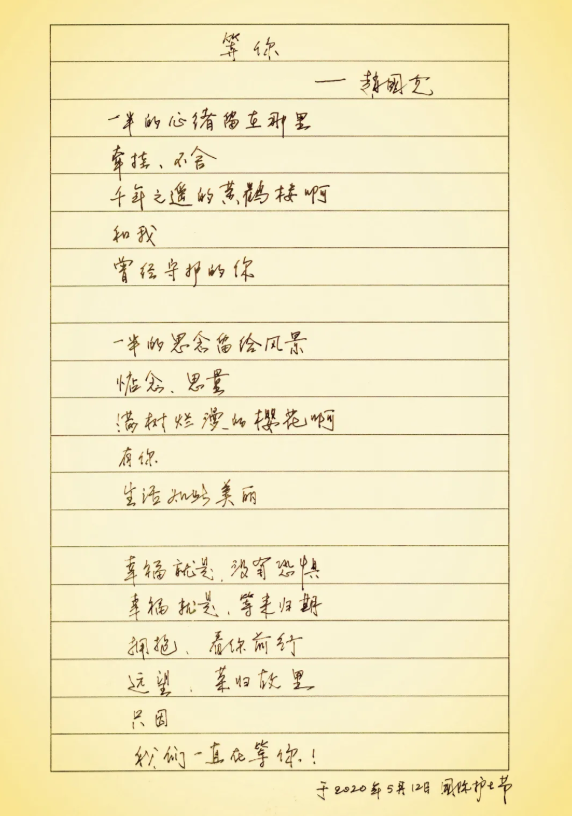 等你
——赵国克
一半的心绪留在那里
牵挂、不舍
千年之遥的黄鹤楼啊
和我
曾经守护的你
一半的思念留给风景
惦念、思量
满树烂漫的樱花啊
有你
生活如此美丽
幸福就是,没有恐惧
幸福就是,等来归期
拥抱、看你前行
远望、荣归故里
只因
我们一直在等你!
于2020年5月12日 国际护士节